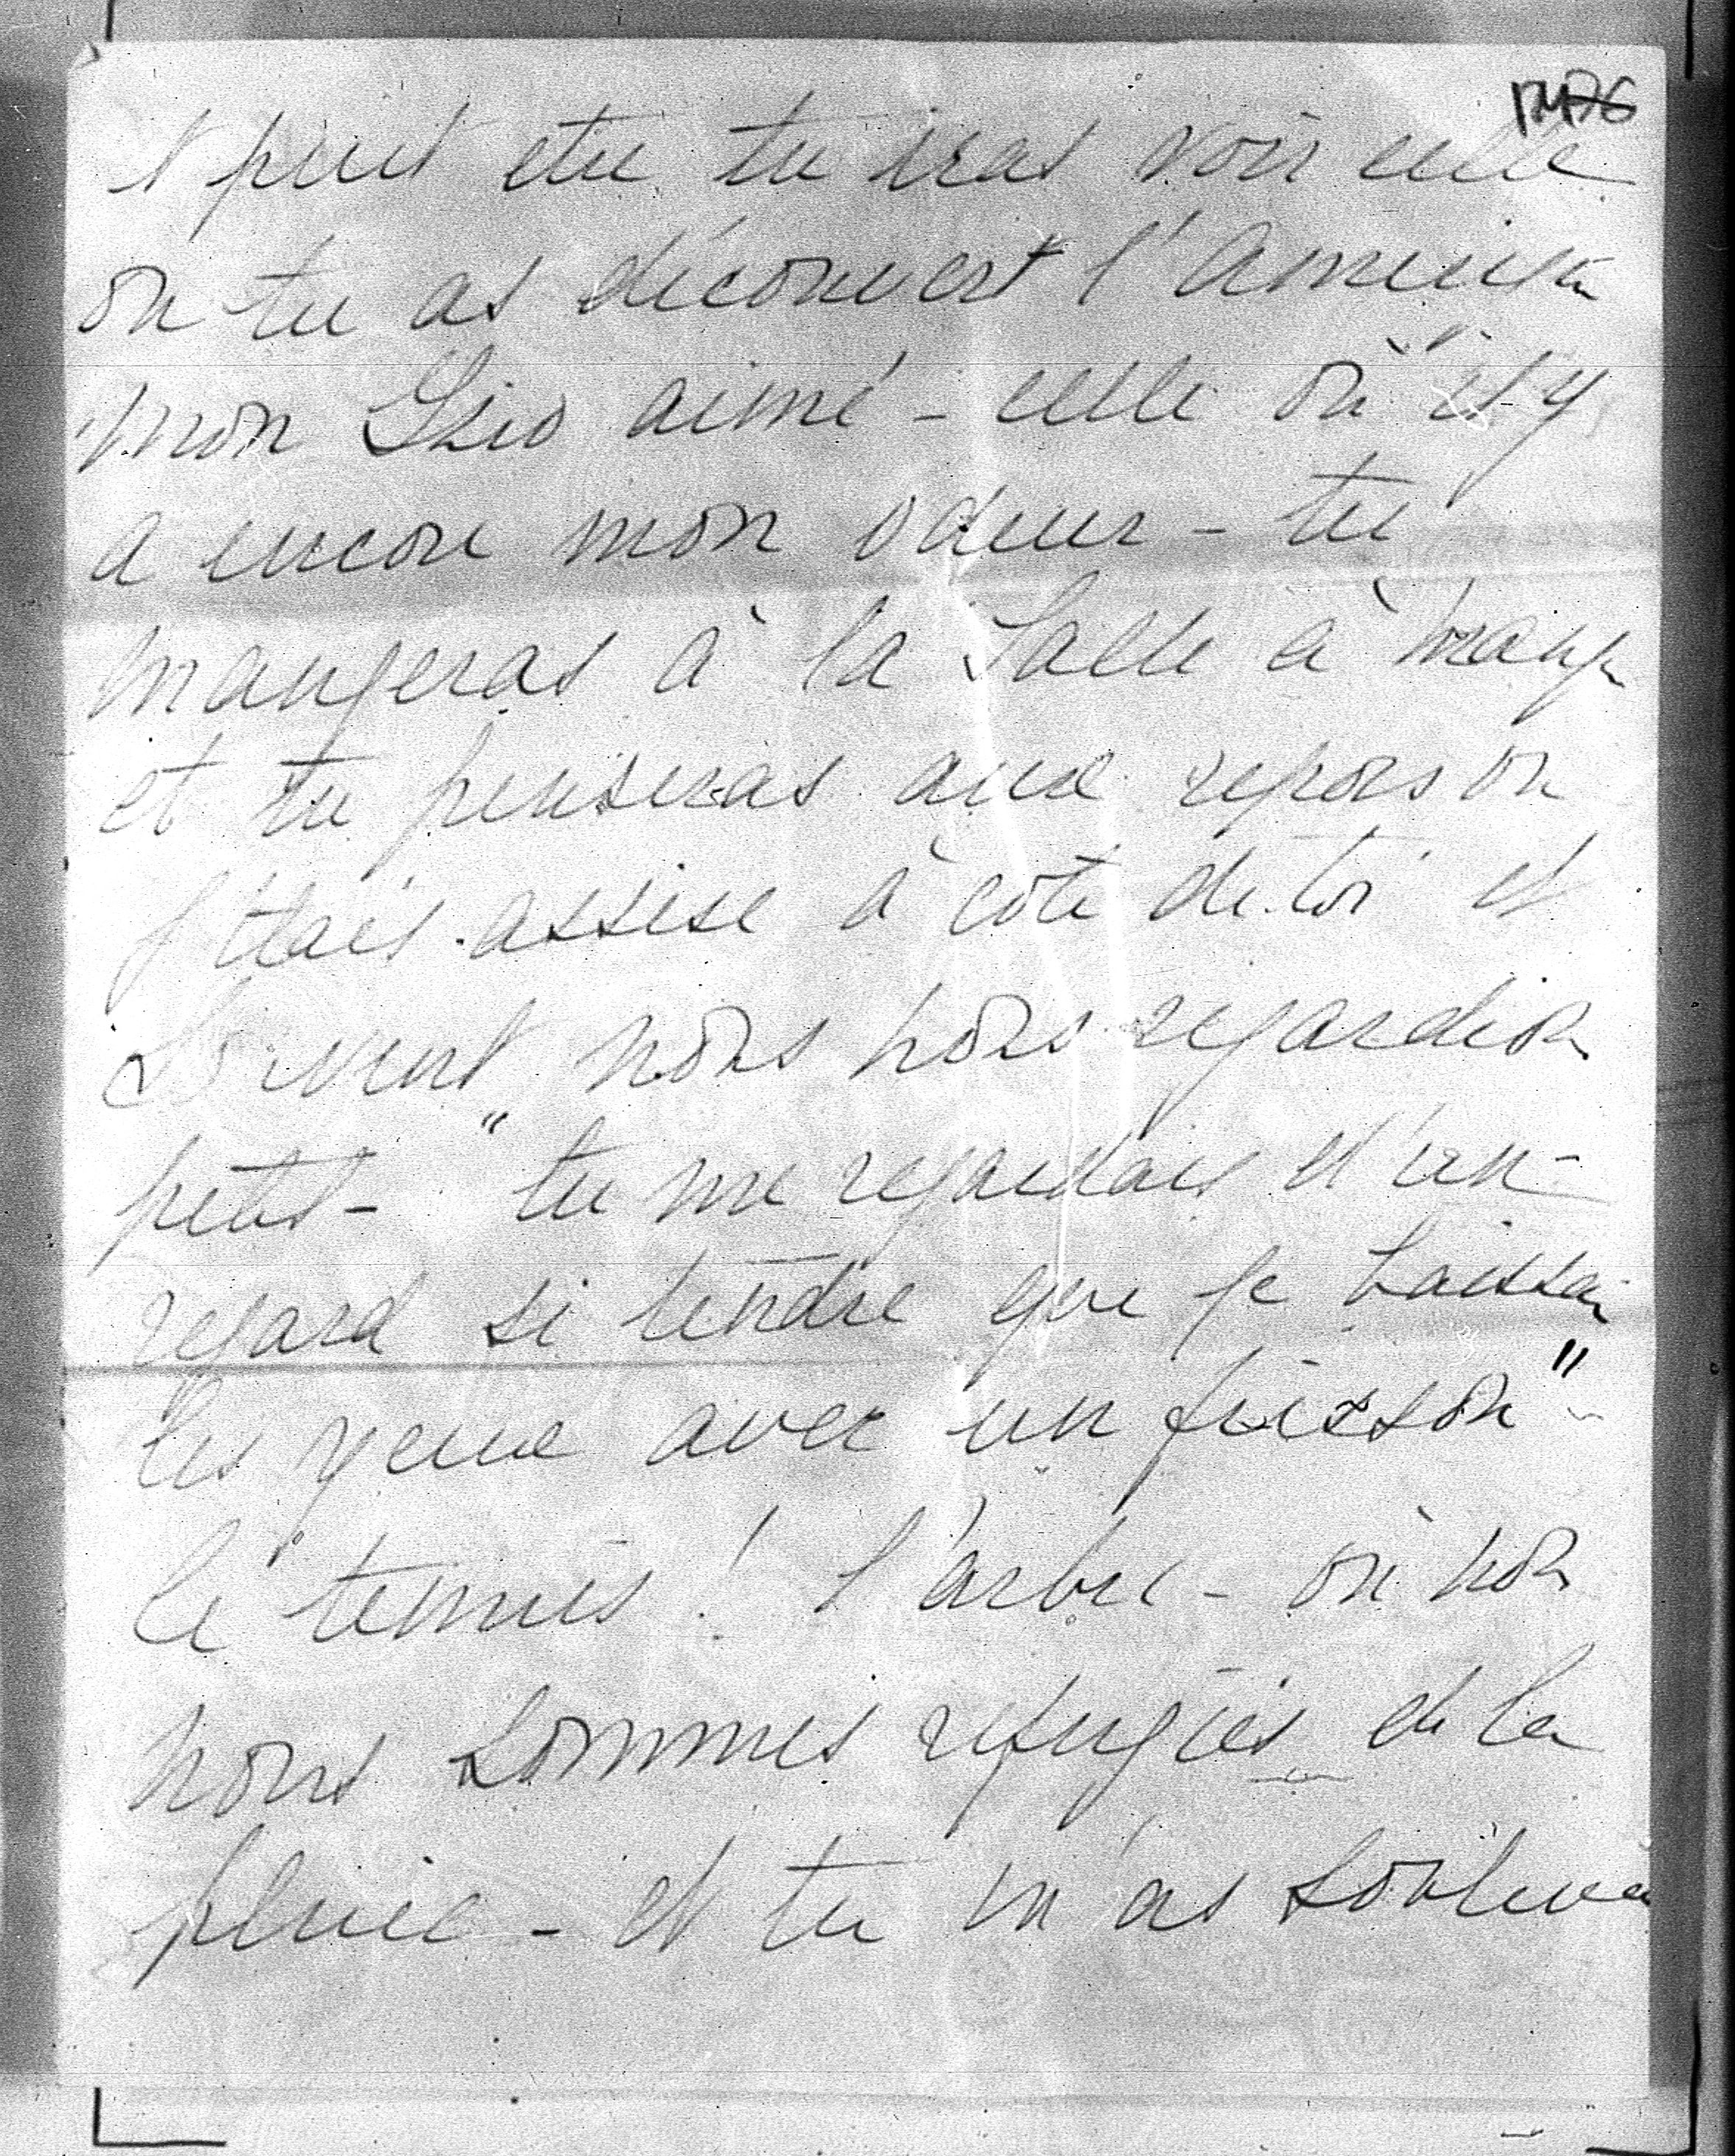 et peut etre tu iras voir celle
ou tu as découvert l'Amerique
mon Lio aimé - celle où "il y
a encore mon odeur - tu
mangeras à la Salle à mang
et tu penseras aux repas ou
j'étais assise à coté de toi et
Souvent nous nous regardion
petit - "tu me regardais d'un -
regard si tendre que je baissai
les yeux avec un frisson"
le tennis ! l'arbre - où nou
nous sommes refugiés de la
pluie - et tu m'as soulevé